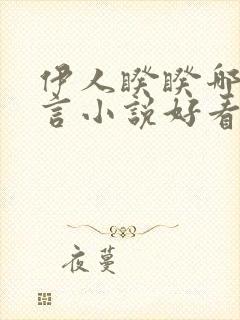 伊人睽睽哪
言小说好看
夜蔓